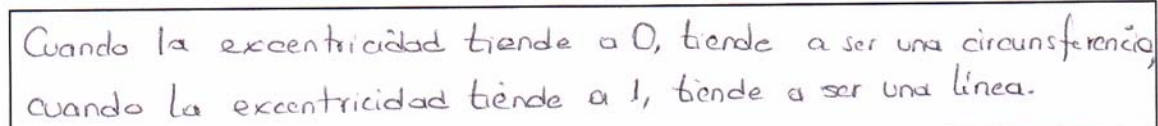 Cuando la excentricidad tiende a 0, tiende a ser una circunsferencia,
cuando la excentricidad tiende a 1, tiende a ser una línea.